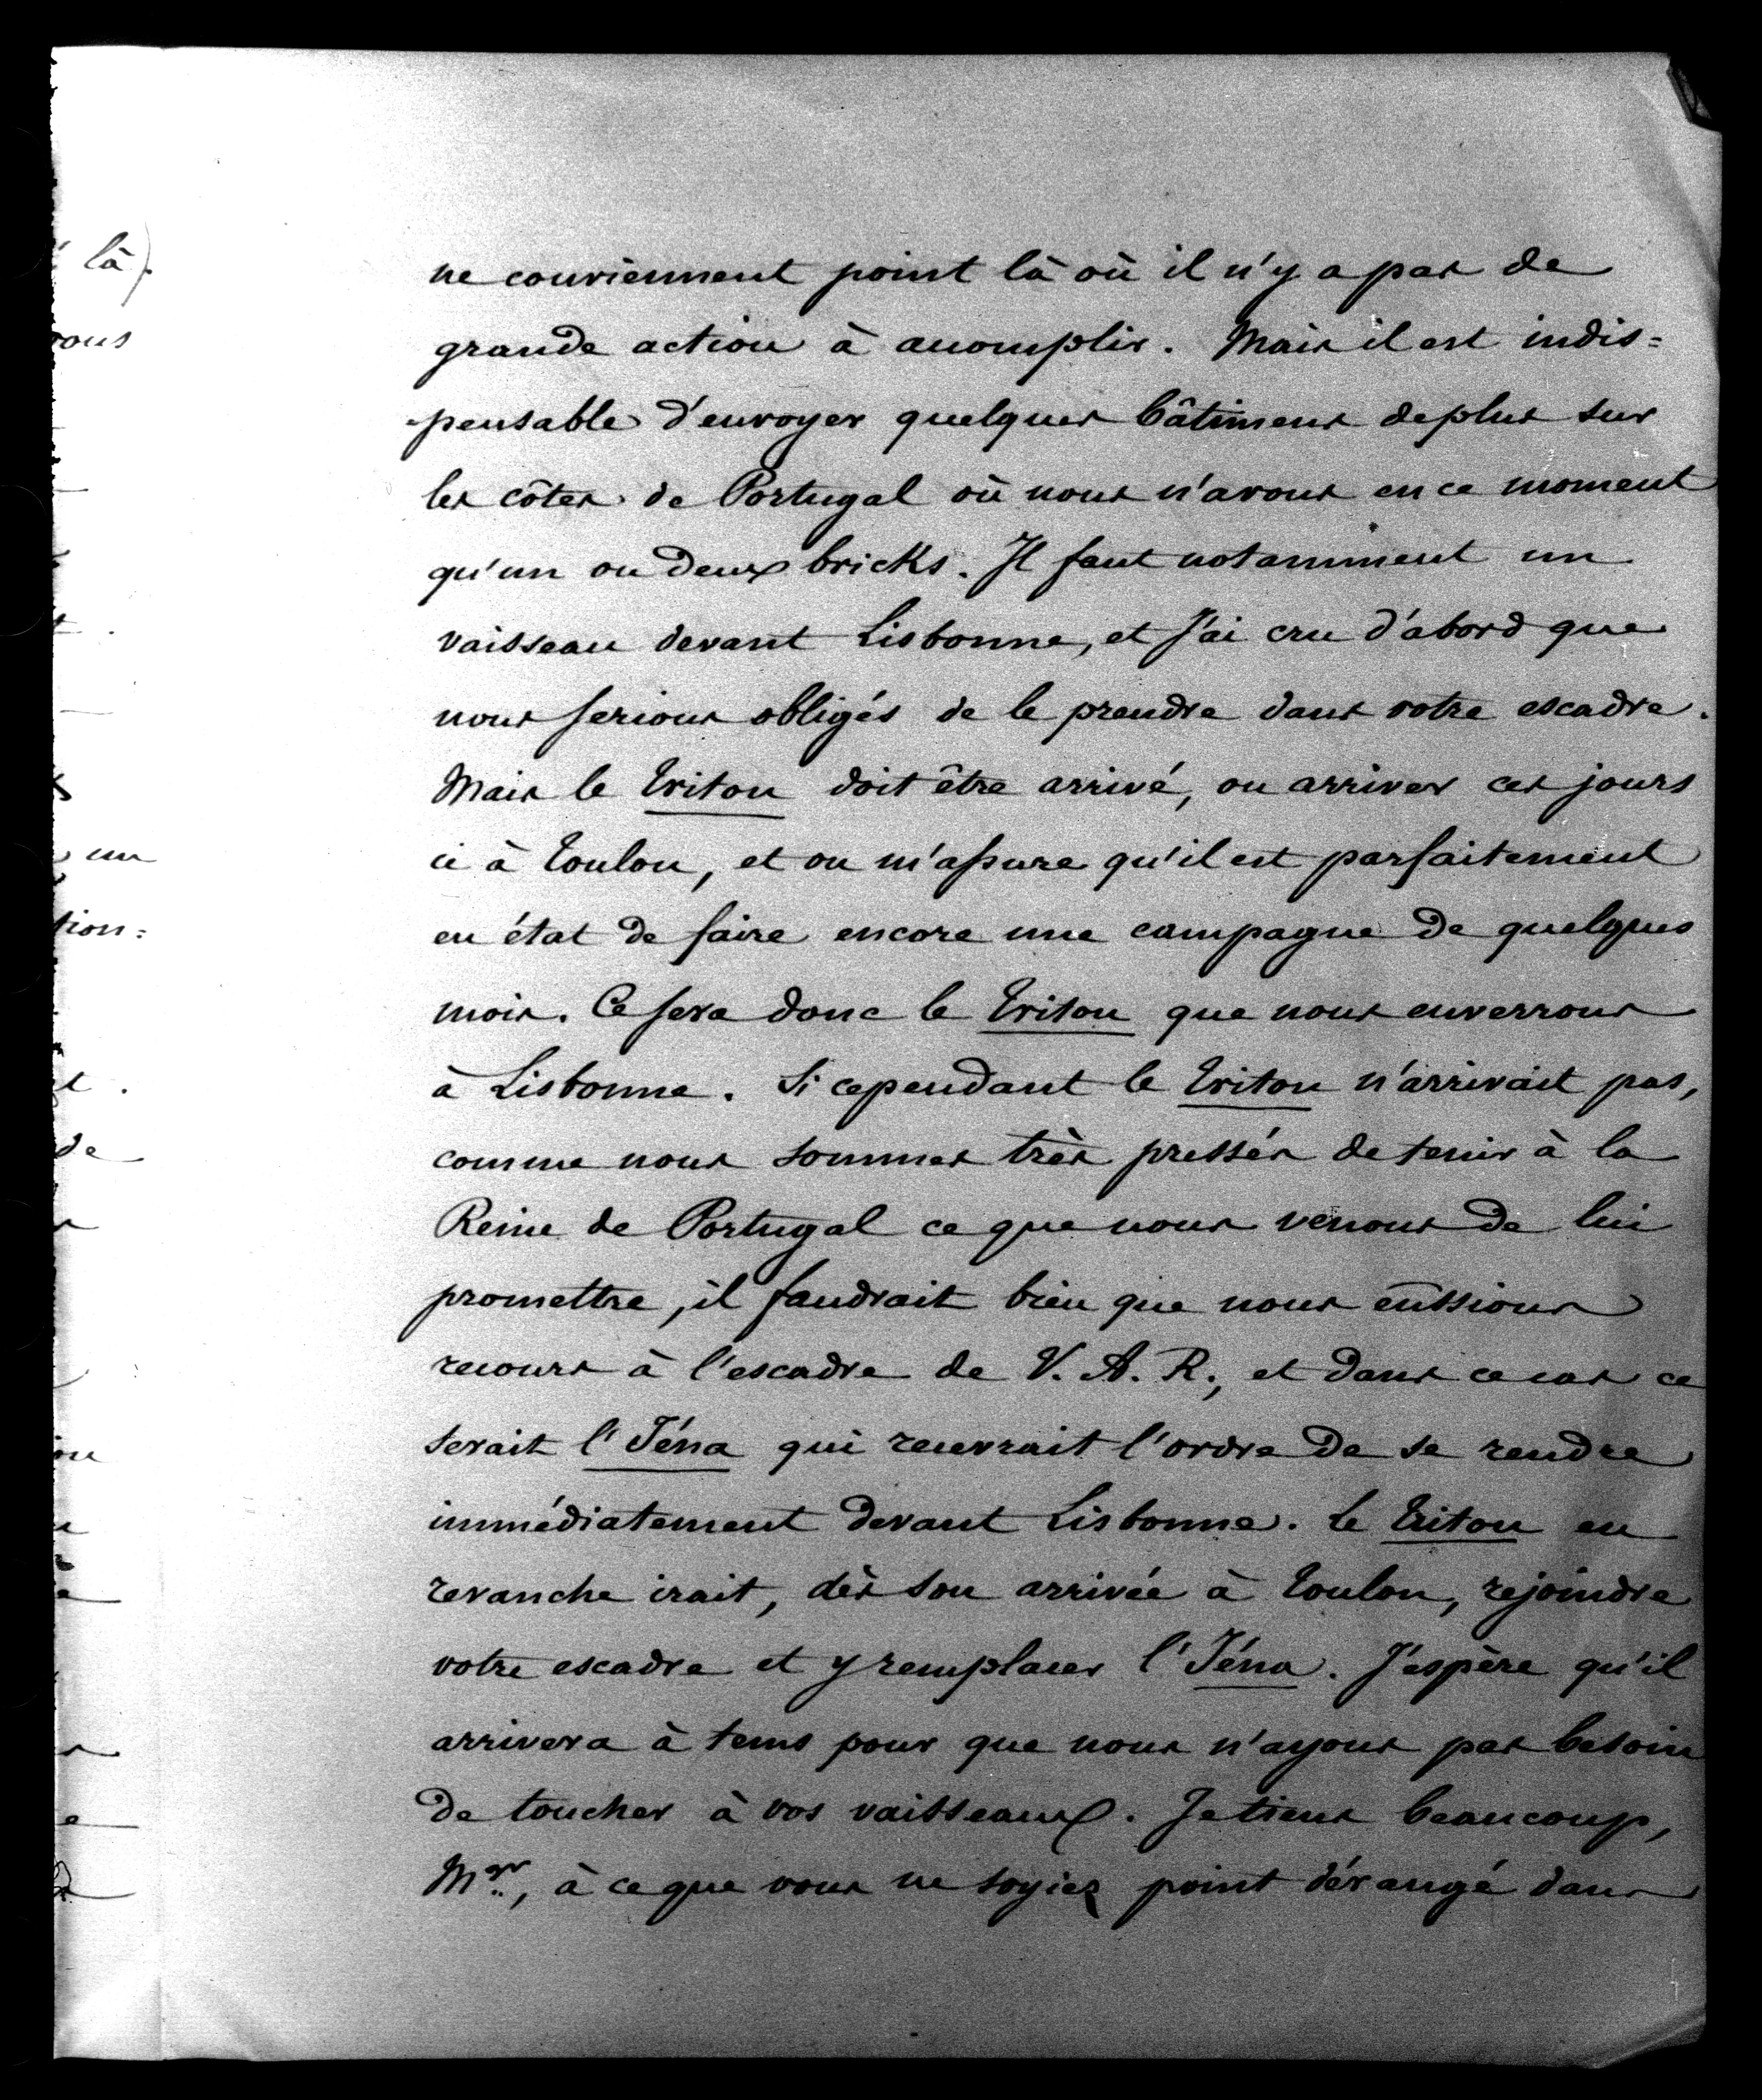 là).
vous
un
tion=
de
ne conviennent point là où il n'y a pas de
grande action à accomplir. Mais il est indis=
pensable d'envoyer quelques bâtimens de plus sur
les côtes de Portugal où nous n'avons en ce moment
qu'un ou deux bricks. Il faut notamment un
vaisseau devant Lisbonne, et j'ai cru d'abord que
nous serions obligés de le prendre dans votre escadre.
Mais le Triton doit être arrivé, ou arriver ces jours
ci à Toulon, et on m'assure qu'il est parfaitement
en état de faire encore une campagne de quelques
mois. Ce sera donc le Triton que nous enverrons
à Lisbonne. Si cependant le Triton n'arrivait pas,
comme nous sommes très pressés de tenir à la
Reine de Portugal ce que nous venons de lui
promettre, il faudrait bien que nous eûssions
recours à l'escadre de V. A. R., et dans ce cas ce
serait l'Iéna qui recevrait l'ordre de se rendre
immédiatement devant Lisbonne. Le Triton en
revanche irait, dès son arrivée à Toulon, rejoindre
votre escadre et y remplacer l'Iéna. J'espère qu'il
arrivera à tems pour que nous n'ayons pas besoin
de toucher à vos vaisseaux. Je tiens beaucoup,
Mgr, à ce que vous ne soyiez point dérangé dans